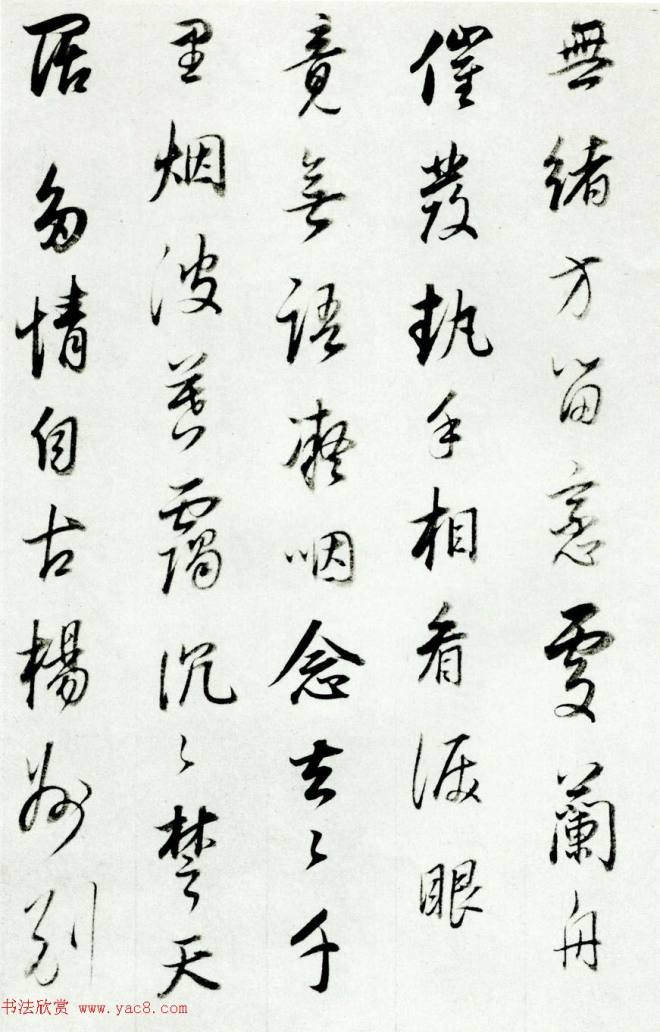 無緒方留戀處蘭舟
催發執手相看淚眼
竟無語凝咽念去々千
里烟波暮靄沉々楚天
闊多情自古傷離別
书法欣赏 www.yac8.com